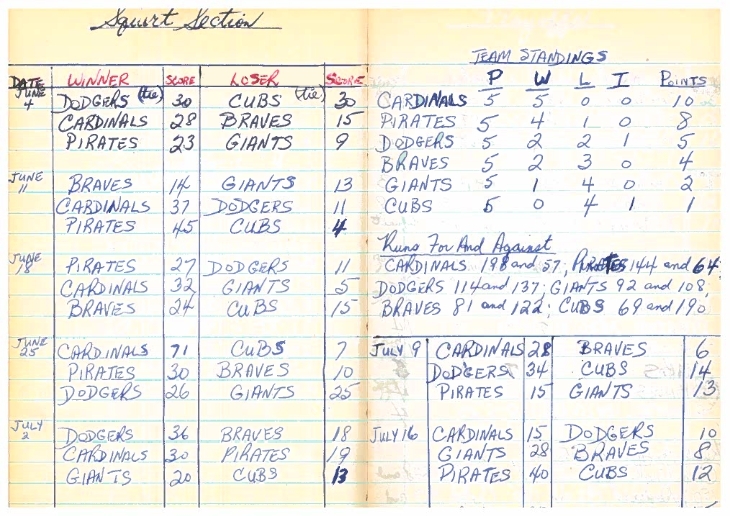 Squirt Section
DATE WINNER SCORE LOSER SCORE
JUNE 4 DODGERS (tie) 30 CUBS (tie) 30
CARDINALS 28 BRAVES 15
PIRATES 23 GIANTS 9
JUNE 11 BRAVES 14 GIANTS 13
CARDINALS 37 DODGERS 11
PIRATES 45 CUBS 4
JUNE 18 PIRATES 27 DODGERS 11
CARDINALS 32 GIANTS 5
BRAVES 24 CUBS 15
JUNE 25 CARDINALS 71 CUBS 7
PIRATES 30 BRAVES 10
DODGERS 26 GIANTS 25
JULY 2 DODGERS 36 BRAVES 18
CARDINALS 30 PIRATES 19
GIANTS 20 CUBS 13
TEAM STANDINGS
P W L T POINTS
CARDINALS 5 5 0 0 10
PIRATES 5 4 1 0 8
DODGERS 5 2 2 1 5
BRAVES 5 2 3 0 4
GIANTS 5 1 4 0 2
CUBS 5 0 4 1 1
Runs For And Against
CARDINALS 198 and 57; PIRATES 144 and 64;
DODGERS 114 and 137; GIANTS 92 and 108;
BRAVES 81 and 122; CUBS 69 and 190
JULY 9 CARDINALS 28 BRAVES 6
DODGERS 34 CUBS 14
PIRATES 15 GIANTS 13
JULY 16 CARDINALS 15 DODGERS 10
GIANTS 28 BRAVES 8
PIRATES 40 CUBS 12